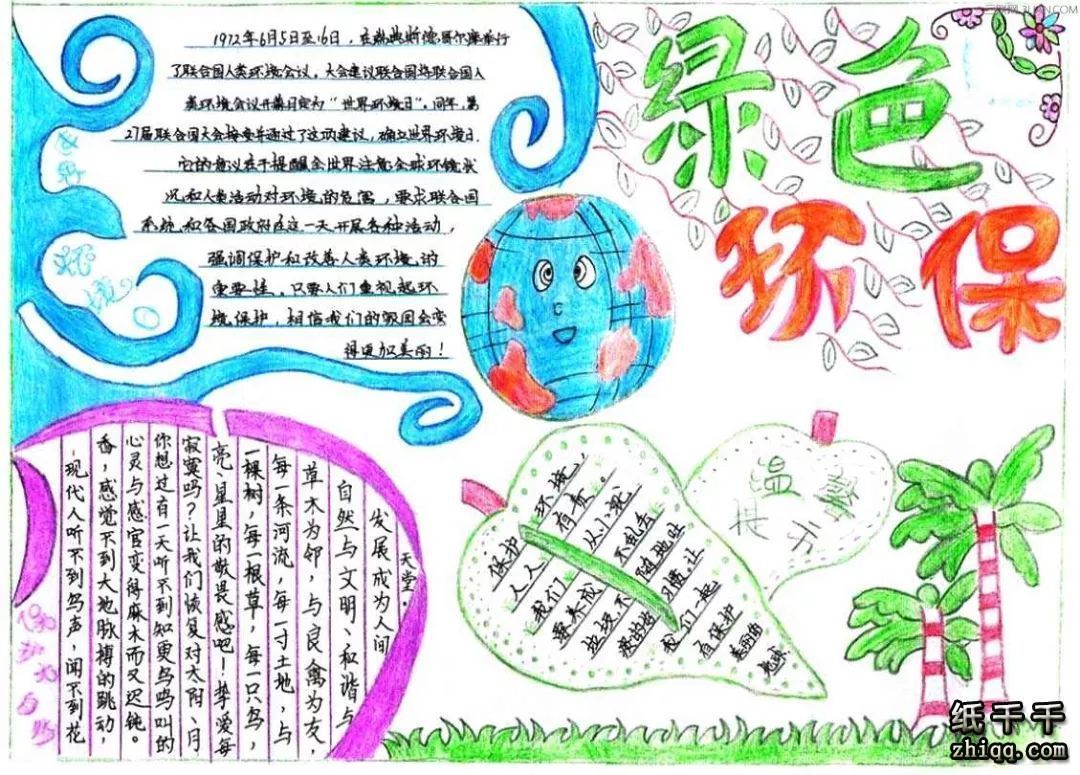 绿色
环保
1972年6月5日至16日，在瑞典斯德哥尔摩举行
了联合国人类环境会议，大会建议联合国将联合国人
类环境会议开幕日定为“世界环境日”。同年，第
27届联合国大会接受并通过了这项建议，确立世界环境日
它的意义在于提醒全世界注意全球环境状
况和人类活动对环境的危害，要求联合国
系统和各国政府在这一天开展各种活动，
强调保护和改善人类环境的
重要性，只要人们重视起环
境保护，相信我们的祖国会变
得更加美丽！
现代人听不到鸟声，闻不到花
香，感觉不到大地脉搏的跳动，
心灵与感官变得麻木而又迟钝。
你想过有一天听不到知更鸟鸣叫的
寂寞吗？让我们恢复对太阳、月
亮、星星的敬畏感吧！挚爱每
一棵树，每一根草，每一只鸟，
每一条河流，每一寸土地，与
草木为邻，与良禽为友，
自然与文明、和谐与
发展成为人间
天堂。
温馨
提示
保护环境，
人人有责。
我们从小就
要养成不乱丢
垃圾不随地吐
习惯，让
我们一起
有保护
美丽的
地球
纸千千
zhiqq.com